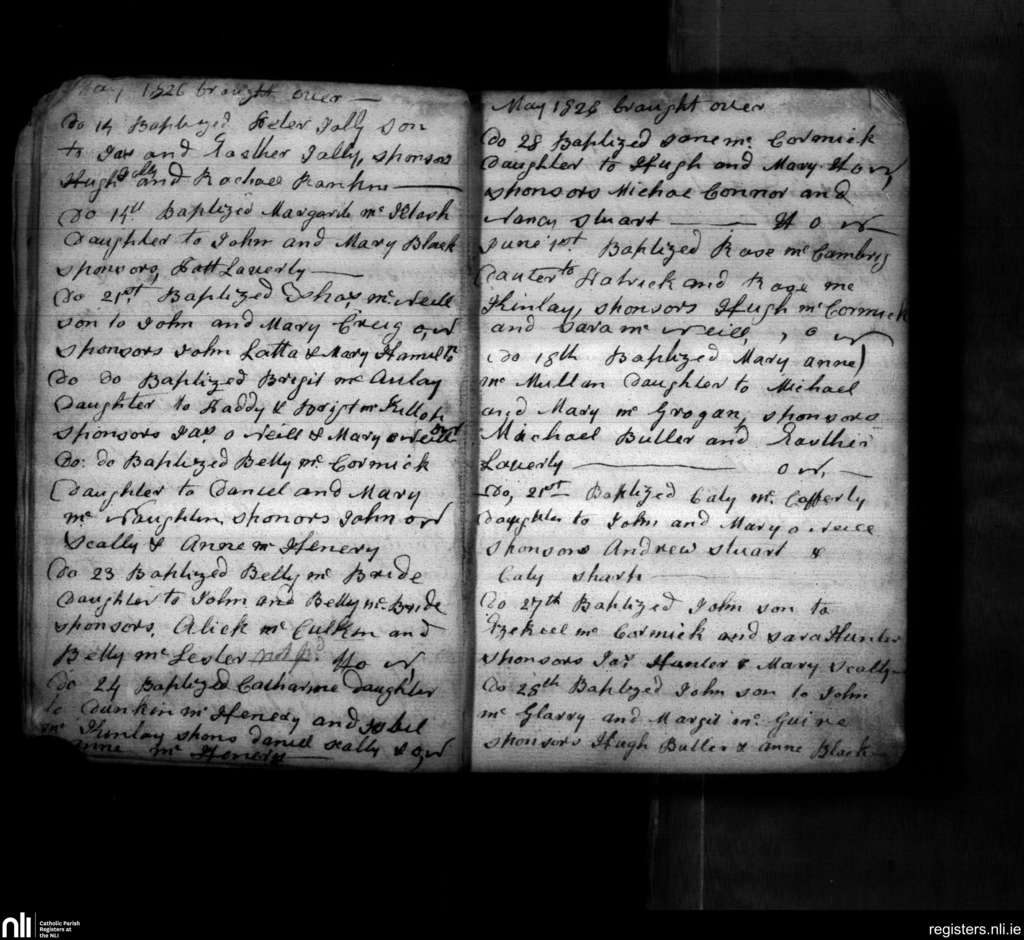 May 1826 brought over
Do 14 Baptized Peter Jolly son
to Jas and Easther Jolly, sponsors
Hugh Jolly and Rachael Rankin
Do 14th Baptized Margaret Mc
Daughter to John and Mary Black
sponsors, Patt Laverty
Do 21st Baptized Mc Neill
son to John and Mary Creig o, w
sponsors John Latta & Mary Hamilton
Do Do Baptized Brigit Mc Aulay
Daughter to Paddy & Brigt Mc Killop
sponsors Jas. o Neill & Mary o Neill
Do. do Baptized Betty Mc Cormick
Daughter to Daniel and Mary
Mc Naughten sponors John o w
Scally & Anne Mc Henery
Do 23 Baptized Betty Mc Bride
Daughter to John and Betty Mc Bride
sponsors, Alick Mc and
Betty Mc Lester o w
Do 24 Baptized Catharine daughter
to Dunkin Mc Henery and Isbel
Mc Kinlay spons daniel scally & o w
anne Mc Henery
May 1826 brought over
Do 28 Baptized Jane Mc Cormick
Daughter to Hugh and Mary
sponsors Michae Connor and
Nancy Stuart H o w
June 1st. Baptized Rose Mc Cambrig
Dauter to Patrick and Rose Mc
Kinlay, sponsors Hugh Mc Cormick
and Sara Mc Neill, , o w
Do 18th Baptized Mary anne
Mc Mullan Daughter to Michael
and Mary Mc Grogan, sponsors
Michael Butler and Easther
Laverty o w,
Do, 21st Baptized Caty Mc Cafferty
Daughter to John and Mary o Neice
sponsors Andrew Stuart &
Caty Sharp
Do 27th Baptized John son to
Ezekiel Mc Cormick and Sara Hunter
sponsors Jas. Hunter & Mary Scally
Do 28th Baptized John son to John
Mc Glarry and Margit Mc Guire
sponsors Hugh Butler & anne Black
nli
Catholic Parish
Registers at
the NLI
registers.nli.ie